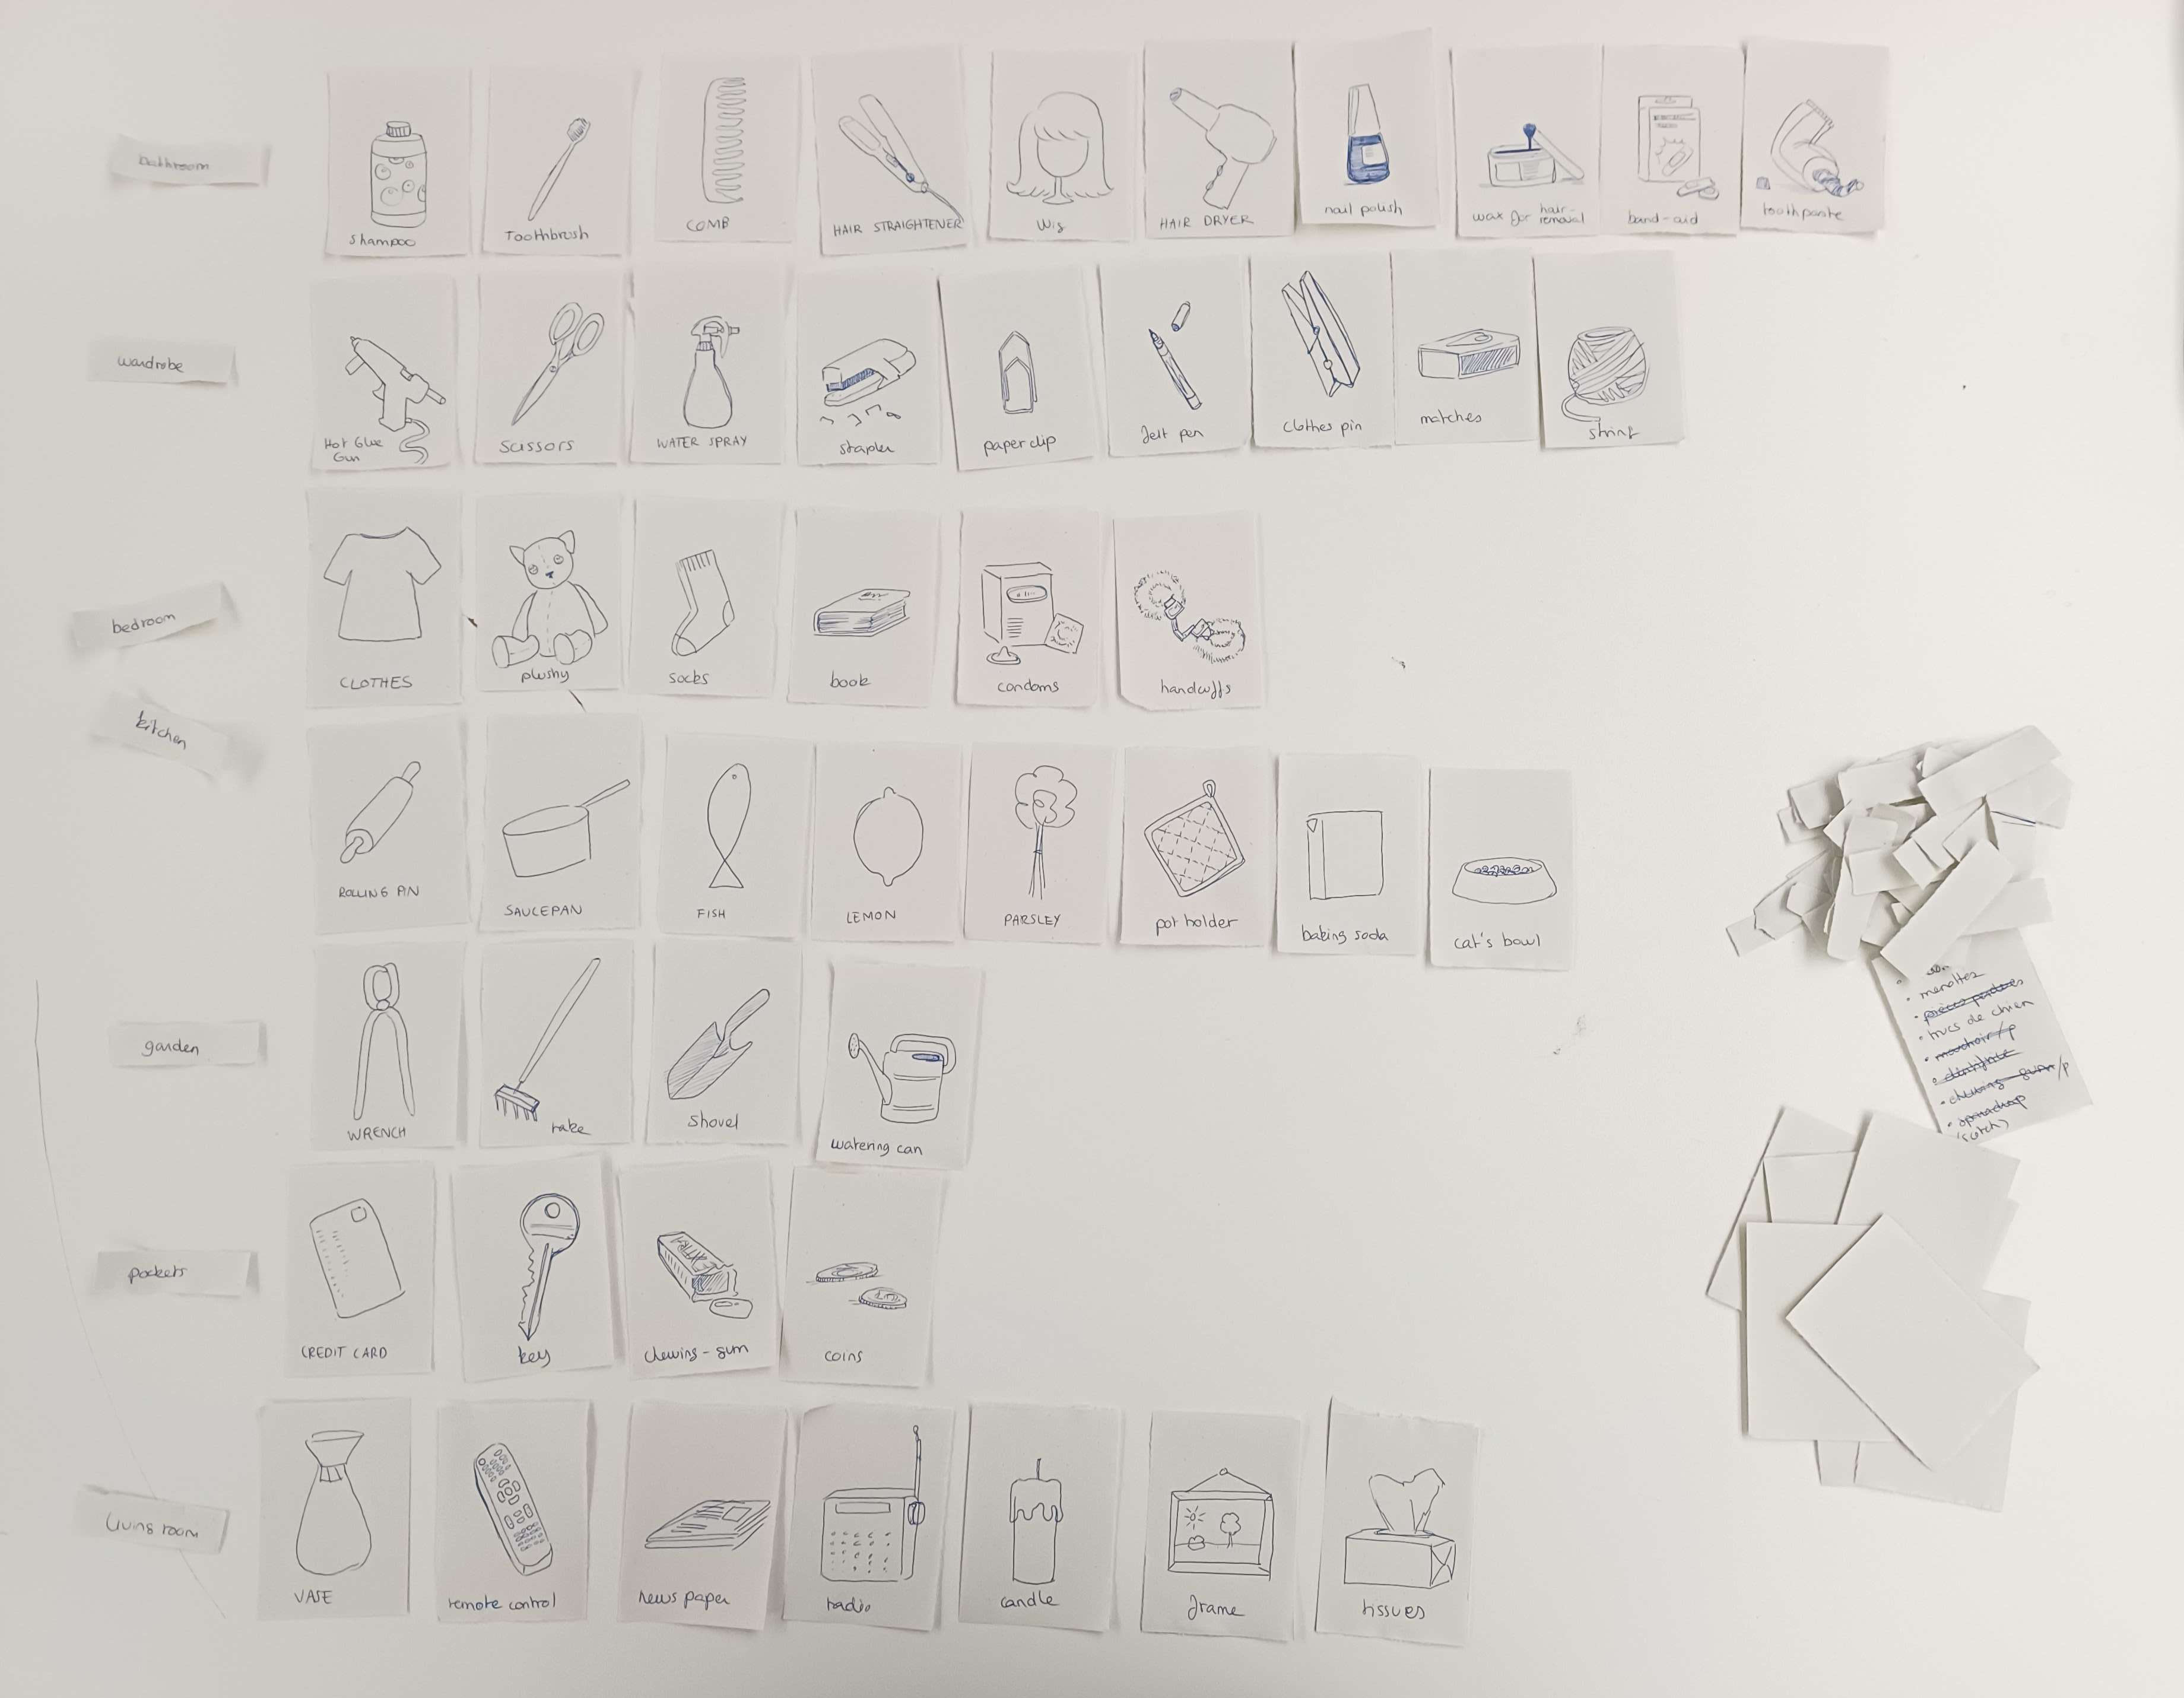 bathroom
shampoo
Toothbrush
COMB
HAIR STRAIGHTENER
Wig
HAIR DRYER
nail polish
wax for hair-
removal
band-aid
toothpaste
wardrobe
HOT GLUE
GUN
SCISSORS
WATER SPRAY
stapler
paper clip
felt pen
clothes pin
matches
string
bedroom
CLOTHES
plushy
socks
book
condoms
handcuffs
kitchen
ROLLING PIN
SAUCEPAN
FISH
LEMON
PARSLEY
pot holder
baking soda
cat's bowl
garden
WRENCH
rake
shovel
watering can
pockets
CREDIT CARD
key
chewing-gum
coins
living room
VASE
remote control
news paper
radio
candle
frame
tissues
• menottes
• trucs de chien
• mouchoir/p
• dentifrice
• chewing-gum/p
(scotch)